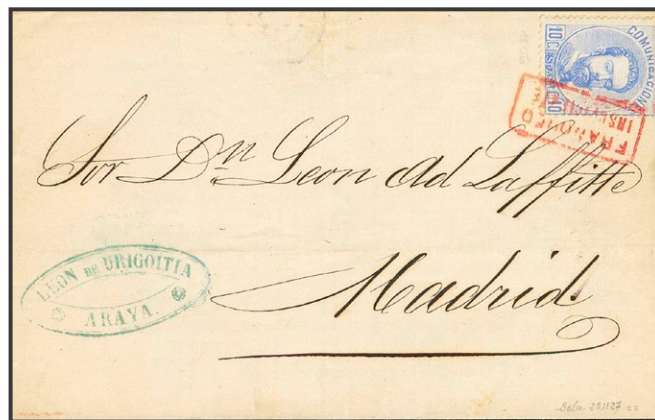 COMUNICACION
10 CS DE PTA 10
FRANQUEO
INSUFICI
Sor Dn Leon Ad Laffitte
Madrid
LEON DE URIGOITIA
ARAYA.